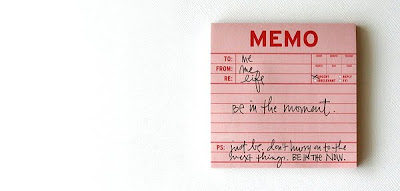 MEMO
TO: me
FROM: me
RE: life
URGENT REPLY
IRRELEVANT FYI
Be in the moment.
PS: just be. don't hurry on to the
next things. BE IN THE NOW.